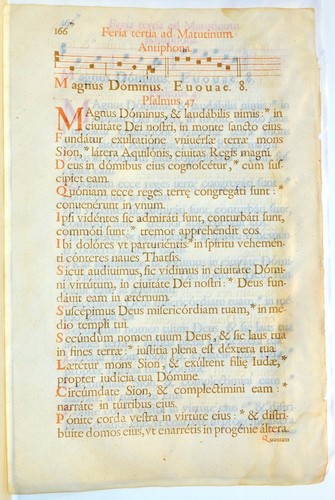 166
Feria tertia ad Matutinum
Antiphona.
Magnus Dóminus. Euouae. 8.
Psalmus 47.
MAgnus Dóminus, & laudabilis nimis: * in
ciuitate Dei nostri, in monte sancto eius.
Fundatur exultatione vniuérsæ terræ mons
Sion, * látera Aquilónis, ciuitas Regis magni.
Deus in dómibus eius cognoscétur, * cum sus-
cipiet eam.
Quóniam ecce reges terræ congregáti sunt: *
conuenérunt in vnum.
Ipsi vidéntes sic admiráti sunt, conturbáti sunt,
commóti sunt: * tremor apprehéndit eos.
Ibi dolóres vt parturiéntis * in spíritu vehemén-
ti cónteres naues Tharsis.
Sicut audíuimus, sic vídimus in ciuitáte Dómi-
ni virtútum, in ciuitáte Dei nostri: * Deus fun-
dáuit eam in ætérnum.
Suscépimus Deus misericórdiam tuam, * in me-
dio templi tui.
Secúndum nomen tuum Deus, & sic laus tua
in fines terræ: * iustítia plena est déxtera tua.
Lætétur mons Sion, & exúltent fíliæ Iudæ, *
propter iudícia tua Dómine.
Circúmdate Sion, & complectímini eam: *
narráte in túrribus eius.
Pónite corda vestra in virtúte eius: * & distrí-
búite domos eius, vt enarrétis in progénie áltera.
Quoniam